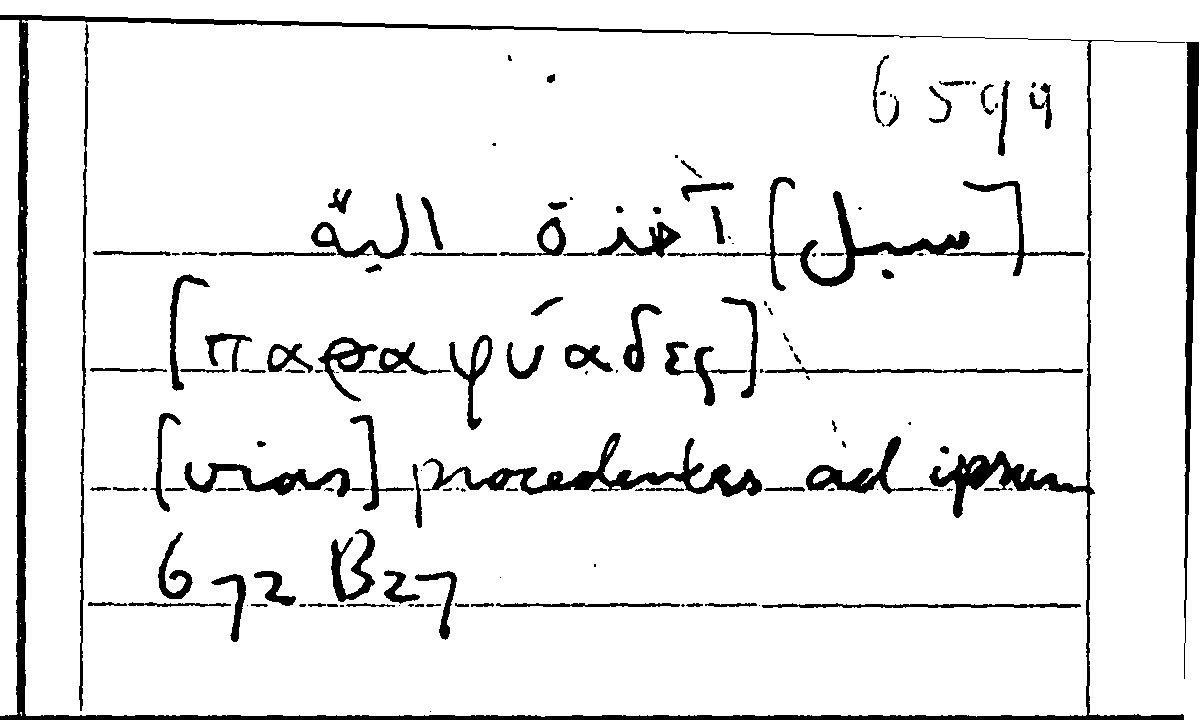 6599
[سبل] آخذة الية
[παραφύαδες]
[vias] procedentes ad ipsum
672 B27